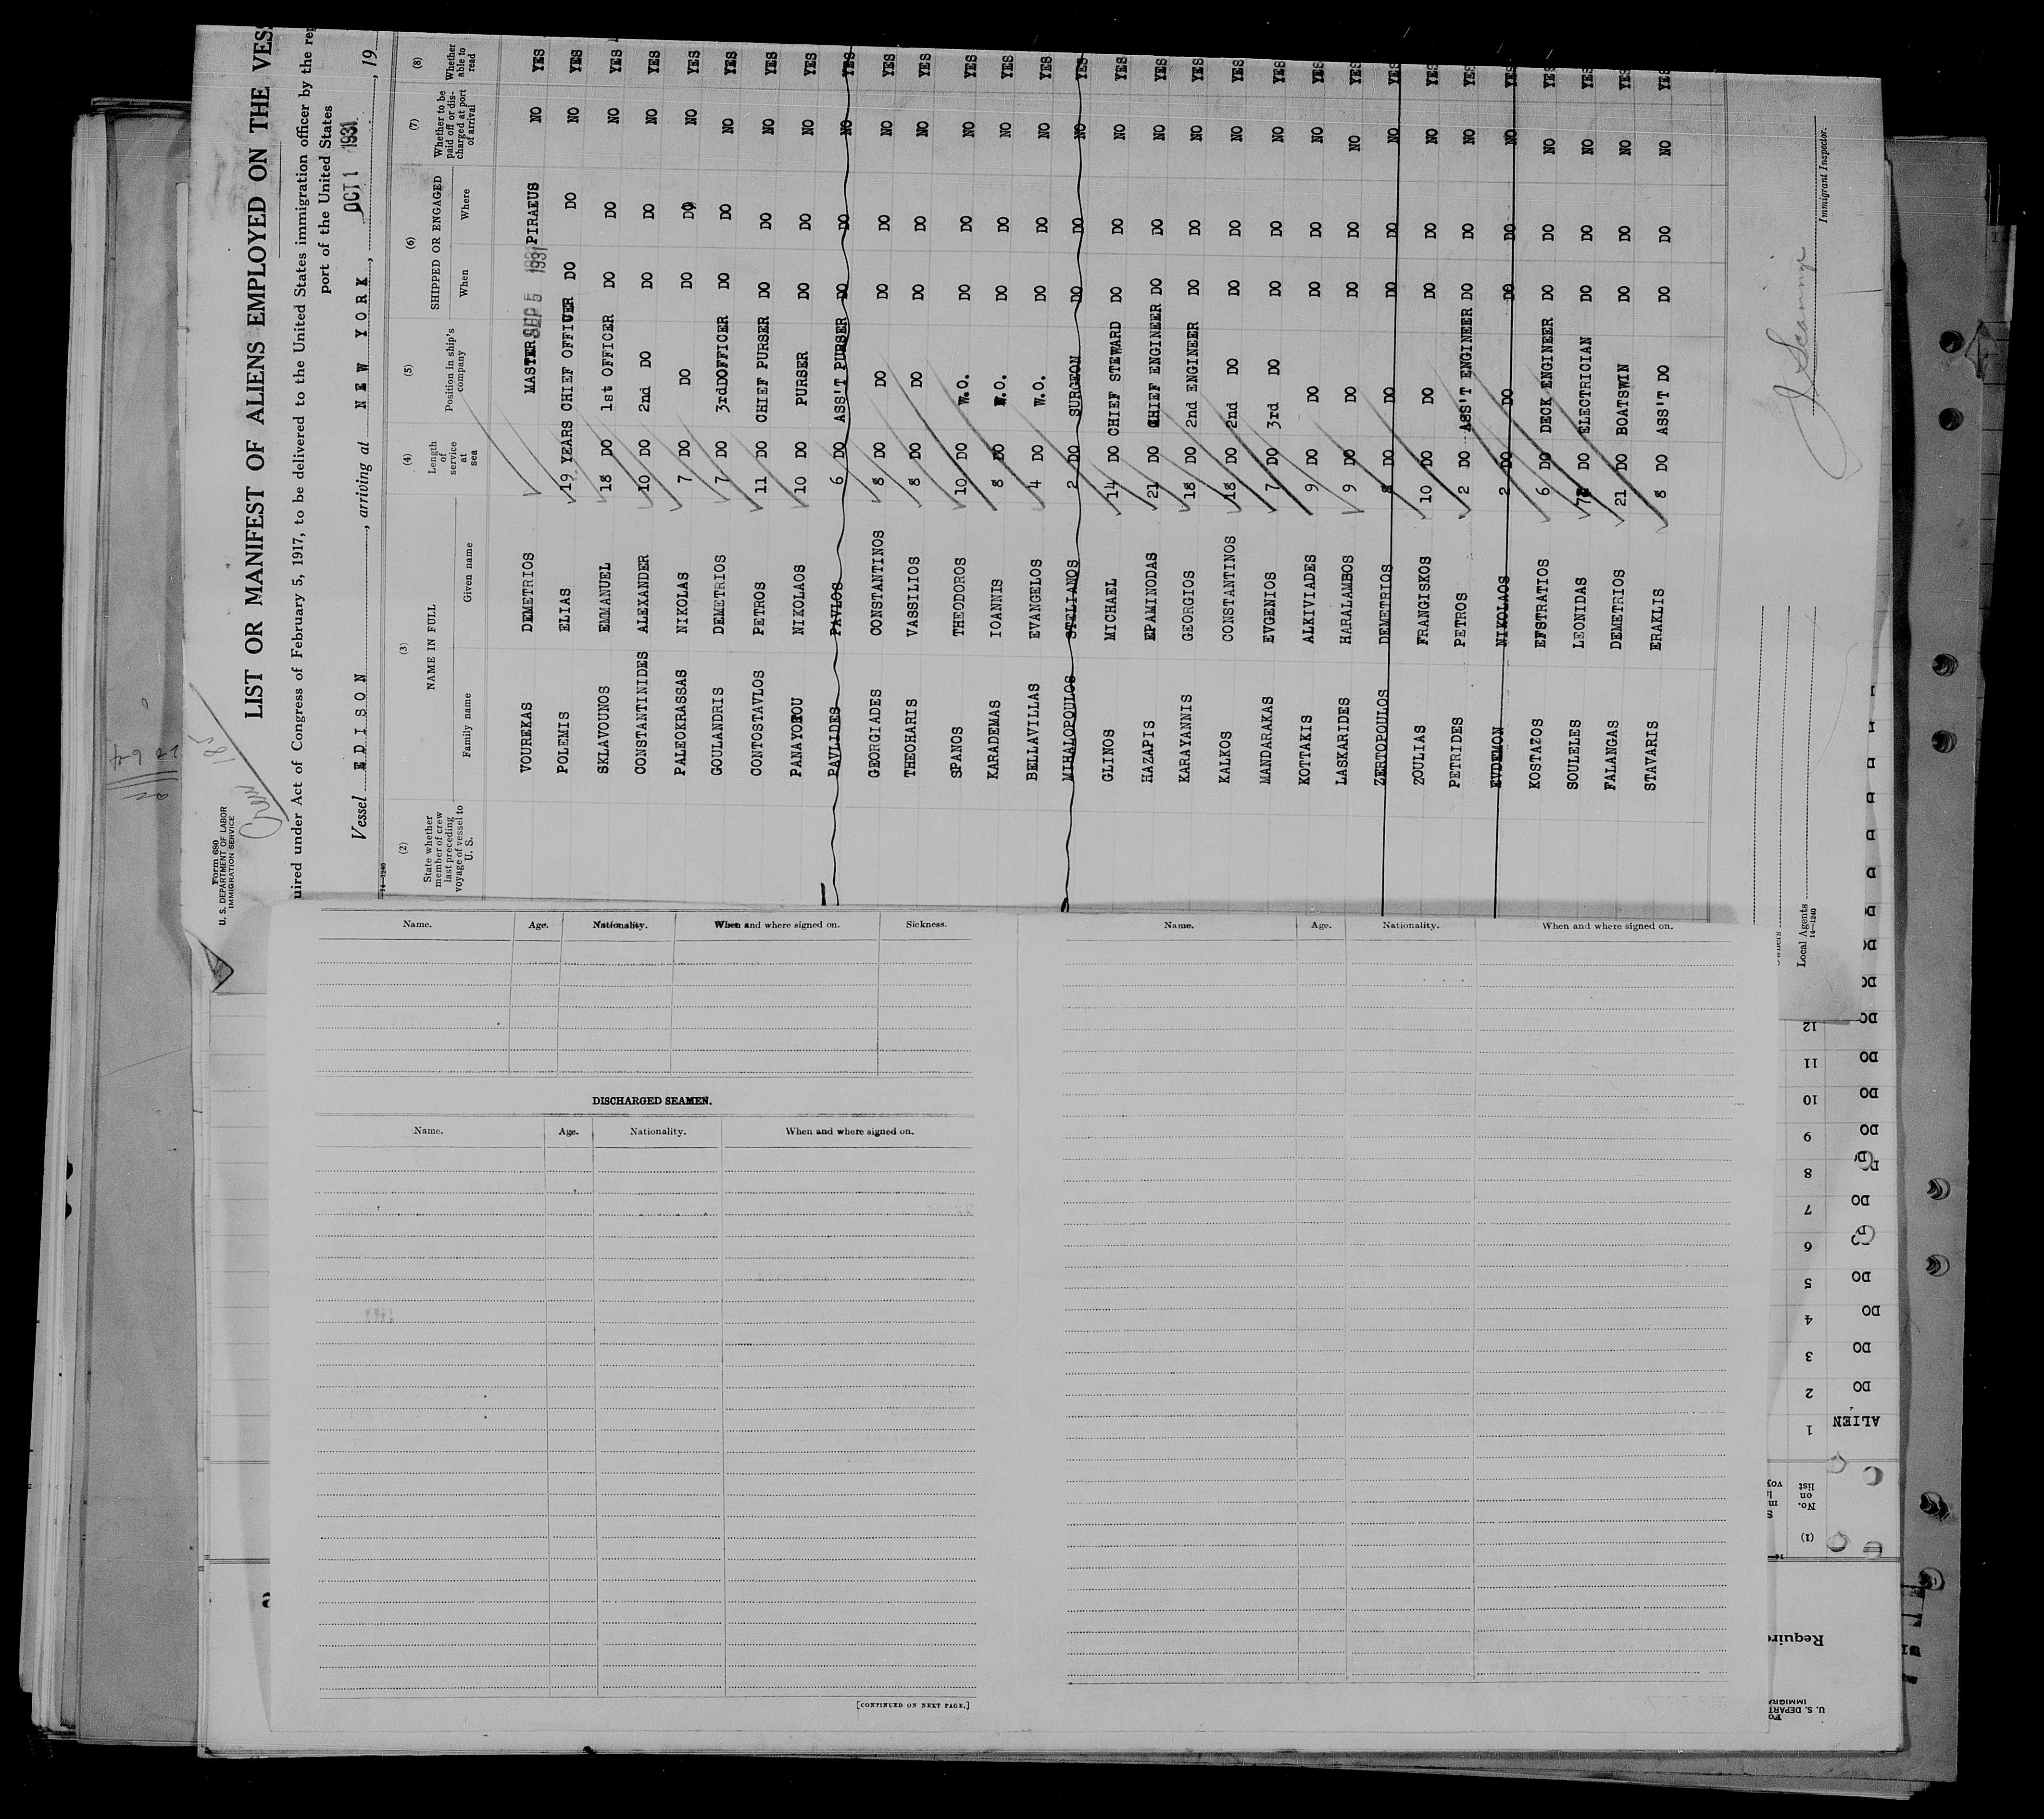 Form 680
U. S. DEPARTMENT OF LABOR
IMMIGRATION SERVICE
Crew
185
LIST OR MANIFEST OF ALIENS EMPLOYED ON THE VES
uired under Act of Congress of February 5, 1917, to be delivered to the United States immigration officer by the rep
port of the United States
Vessel EDISON, arriving at NEW YORK, OCT 1 1931, 19
14—1240
(2) (3) (4) (5) (6) (7) (8)
State whether member of crew last preceding voyage of vessel to U. S. NAME IN FULL Length of service at sea Position in ship's company SHIPPED OR ENGAGED Whether to be paid off or discharged at port of arrival Whether able to read
Family name Given name When Where
VOUREKAS DEMETRIOS MASTER SEP 5 1931 PIRAEUS NO YES
POLEMIS ELIAS 19 YEARS CHIEF OFFICER DO DO NO YES
SKLAVOUNOS EMANUEL 18 DO 1st OFFICER DO DO NO YES
CONSTANTINIDES ALEXANDER 10 DO 2nd DO DO DO NO YES
PALEOKRASSAS NIKOLAS 7 DO DO DO DO NO YES
GOULANDRIS DEMETRIOS 7 DO 3rdDOFFICER DO DO NO YES
CONTOSTAVLOS PETROS 11 DO CHIEF PURSER DO DO NO YES
PANAYOTOU NIKOLAOS 10 DO PURSER DO DO NO YES
PAVLIDES PAVLOS 6 DO ASS'T PURSER DO DO NO YES
GEORGIADES CONSTANTINOS 8 DO DO DO DO NO YES
THEOHARIS VASSILIOS 8 DO DO DO DO NO YES
SPANOS THEODOROS 10 DO W.O. DO DO NO YES
KARADEMAS IOANNIS 8 DO W.O. DO DO NO YES
BELLAVILLAS EVANGELOS 4 DO W.O. DO DO NO YES
MIHALOPOULOS STELIANOS 2 DO SURGEON DO DO NO YES
GLINOS MICHAEL 14 DO CHIEF STEWARD DO DO NO YES
HAZAPIS EPAMINODAS 21 DO CHIEF ENGINEER DO DO NO YES
KARAYANNIS GEORGIOS 18 DO 2nd ENGINEER DO DO NO YES
KALKOS CONSTANTINOS 18 DO 2nd DO DO DO NO YES
MANDARAKAS EVGENIOS 7 DO 3rd DO DO DO NO YES
KOTTAKIS ALKIVIADES 9 DO DO DO DO NO YES
LASKARIDES HARALAMBOS 9 DO DO DO DO NO YES
ZERTOPOULOS DEMETRIOS 8 DO DO DO DO NO YES
ZOULIAS FRANGISKOS 10 DO DO DO DO NO YES
PETRIDES PETROS 2 DO ASS'T ENGINEER DO DO NO YES
EVDEMON NIKOLAOS 2 DO DO DO DO NO YES
KOSTAZOS EFSTRATIOS 6 DO DECK ENGINEER DO DO NO YES
SOULELES LEONIDAS DO ELECTRICIAN DO DO NO YES
FALANGAS DEMETRIOS 21 DO BOATSWIN DO DO NO YES
STAVARIS ERAKLIS 8 DO ASS'T DO DO DO NO YES
Immigrant Inspector.
Local Agents
14—1240
Name. Age. Nationality. When and where signed on. Sickness.
DISCHARGED SEAMEN.
Name. Age. Nationality. When and where signed on.
[CONTINUED ON NEXT PAGE.]
Name. Age. Nationality. When and where signed on.
(1)
No. on list
1 ALIEN
2 DO
3 DO
4 DO
5 DO
6
7 DO
8
9 DO
10 DO
11 DO
12 DO
Require
U. S. DEPART
IMMIGRA